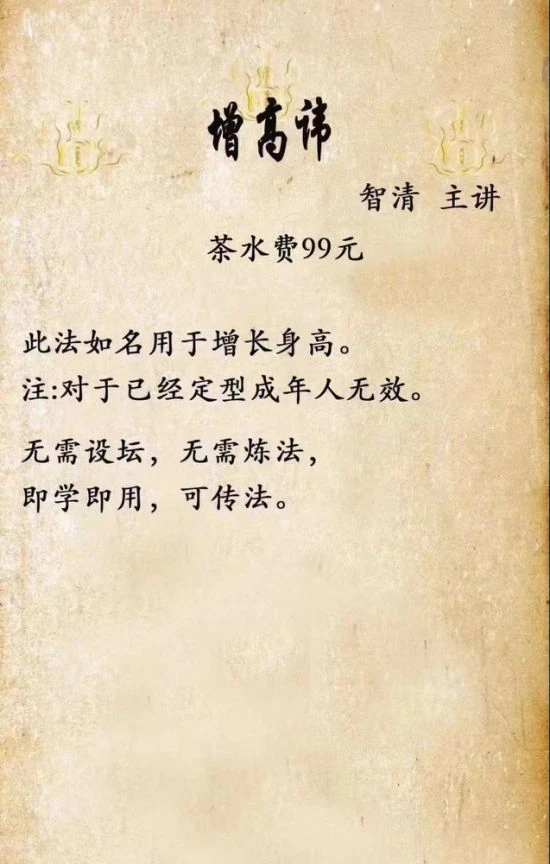 增高讳
智清 主讲
茶水费99元
此法如名用于增长身高。
注:对于已经定型成年人无效。
无需设坛，无需炼法，
即学即用，可传法。